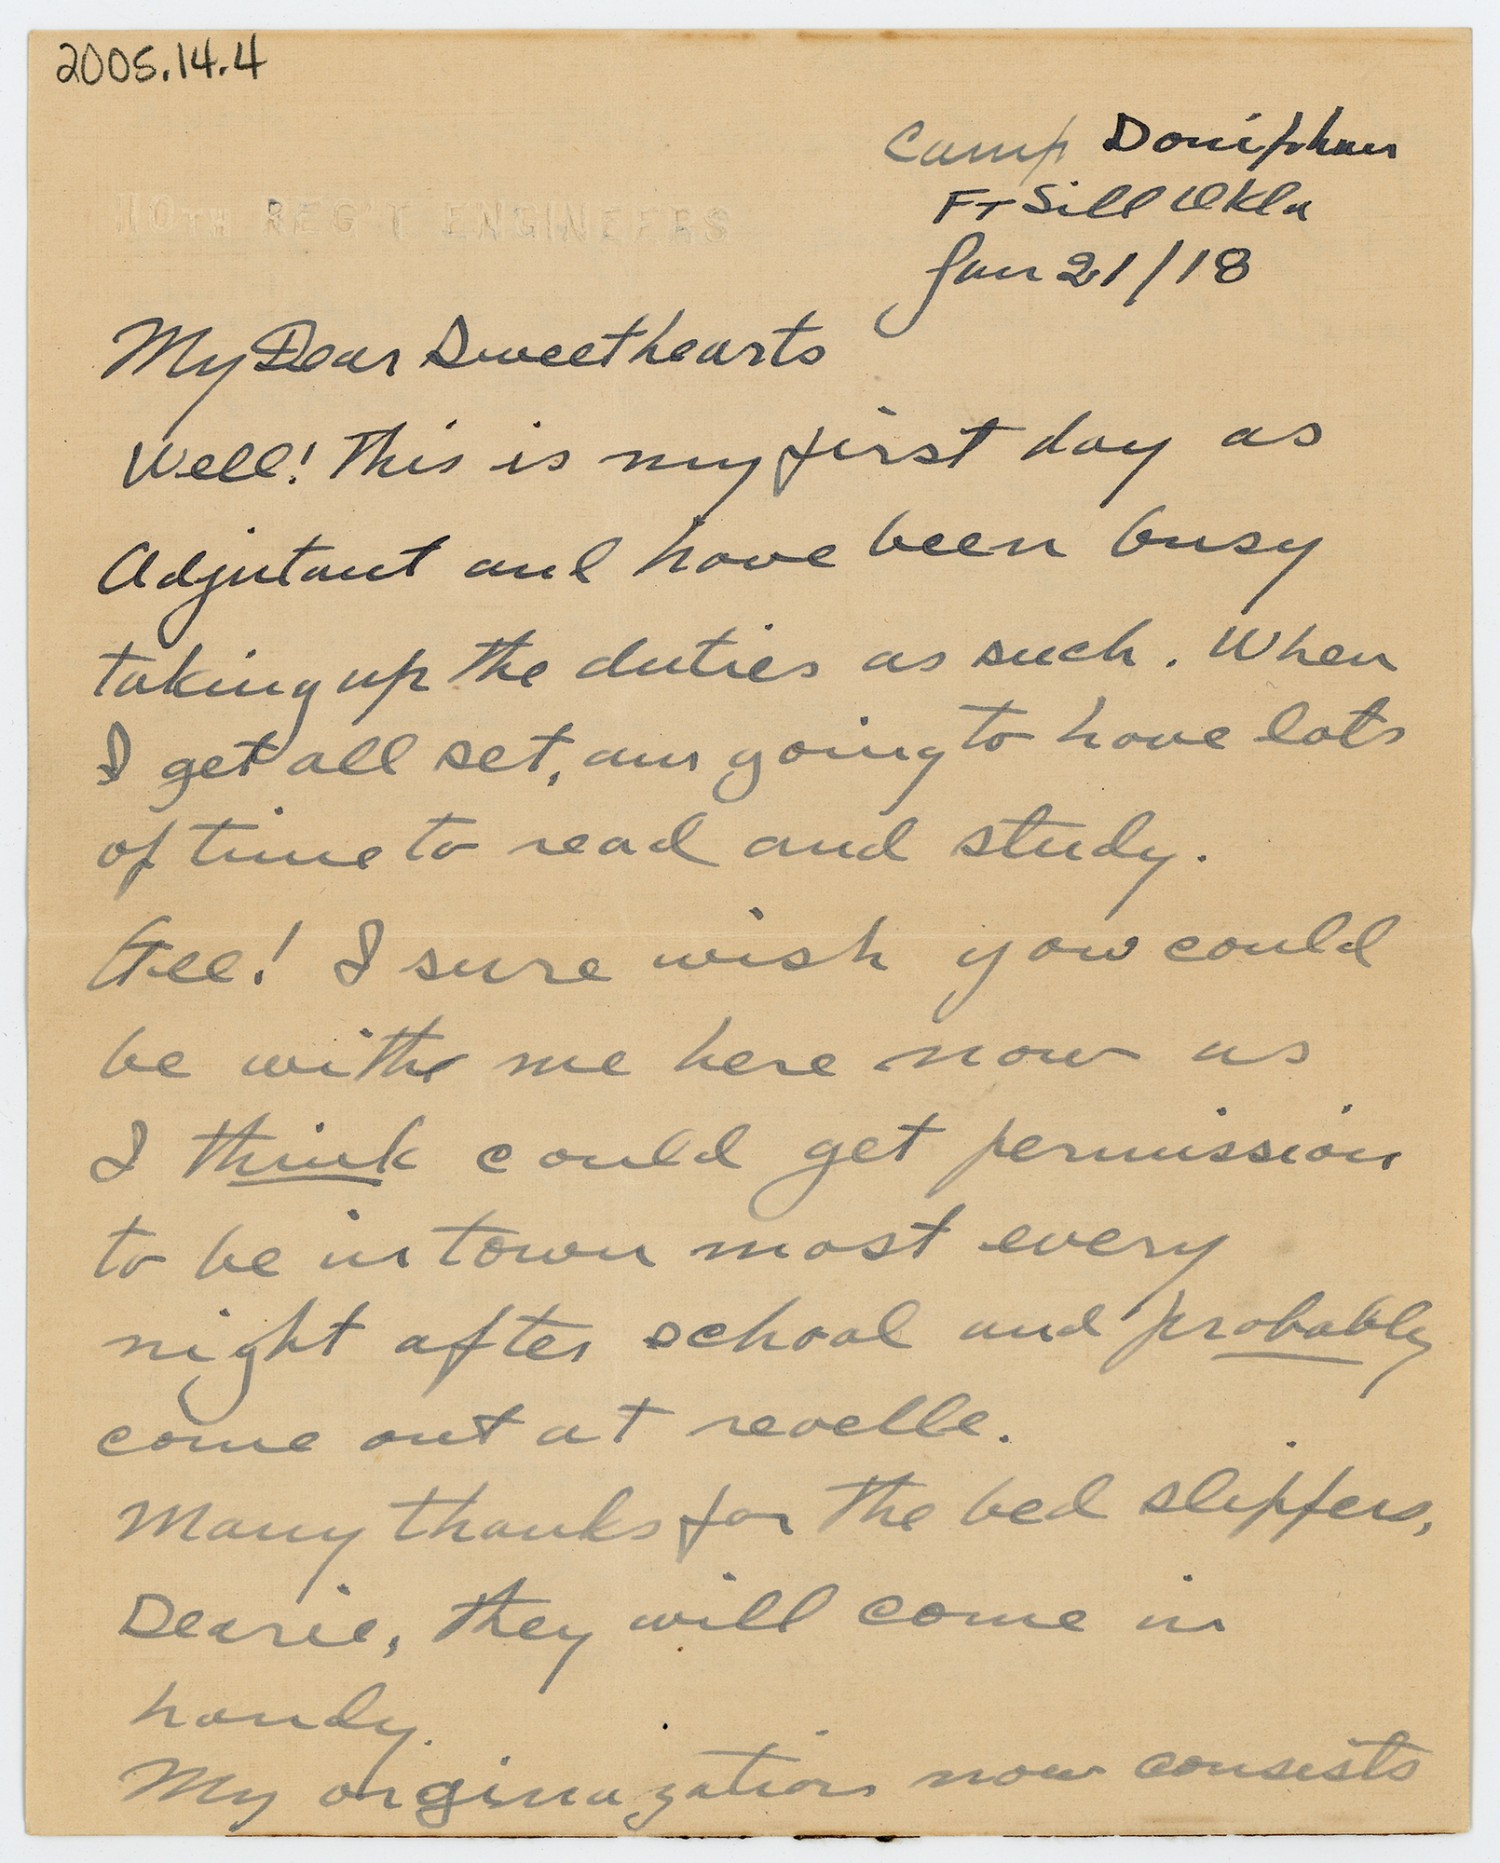 2005.14.4
Camp Doniphan
Ft Sill Okla
Jan 21/18
10TH REG'T ENGINEERS
My Dear Sweethearts
Well! This is my first day as
Adjutant and have been busy
taking up the duties as such. When
I get all set, am going to have lots
of time to read and study.
Gee! I sure wish you could
be with me here now as
I think could get permission
to be in town most every
night after school and probably
come out at revelle.
Many thanks for the bed slippers,
Dearie, they will come in
handy.
My orginazation now consists